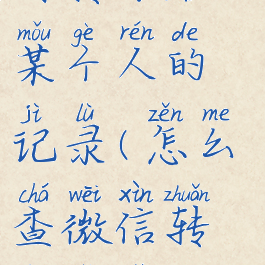 mǒu gè rén de
某个人的
jì lù zěn me
记录(怎么
chá wēi xìn zhuǎn
查微信转